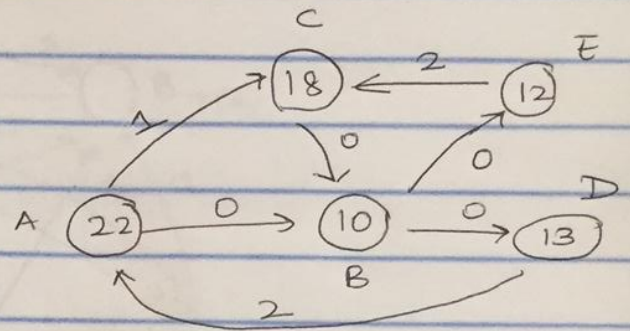 C
E
18
2
12
1
0
0
D
A
22
0
10
0
13
B
2